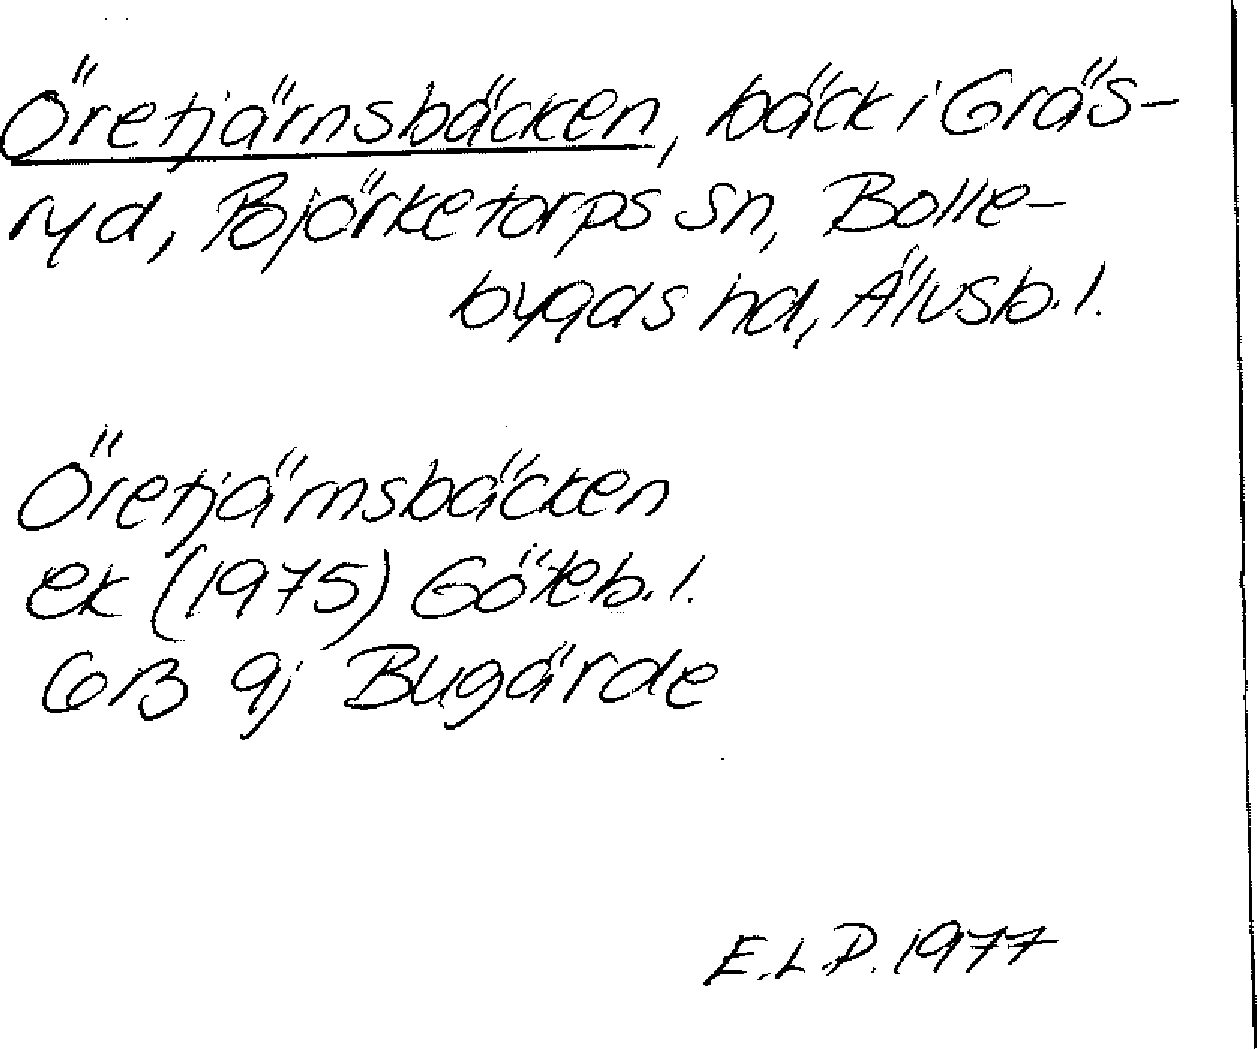 Öretjärnsbäcken, bäck i Gräs-
ryd, Björketorps sn, Bolle-
bygds hd, Älvsb. l.
Öretjärnsbäcken
ek (1975) Göteb. l.
6B 9j Bugärde
E.L.P. 1977